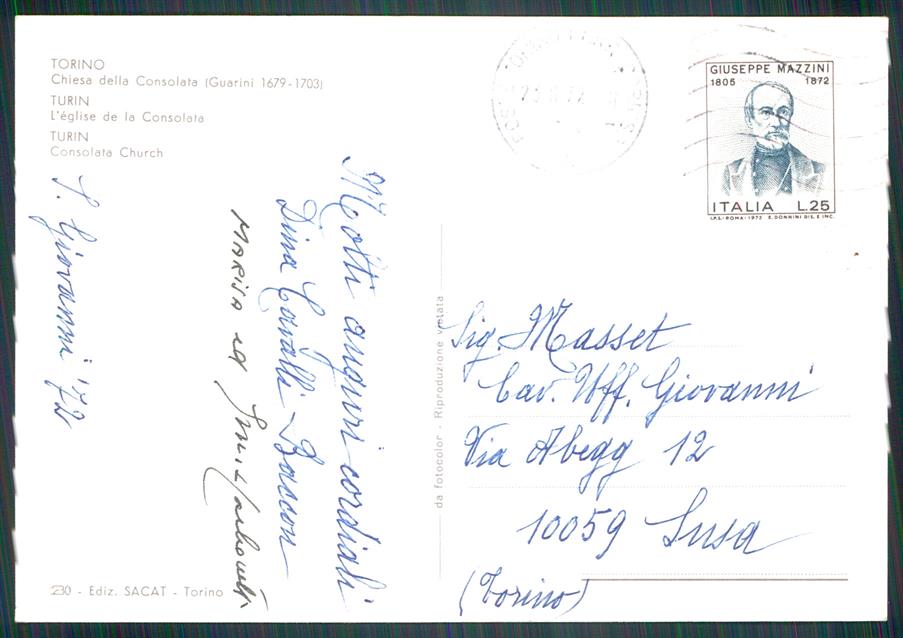 TORINO
Chiesa della Consolata (Guarini 1679-1703)
TURIN
L'église de la Consolata
TURIN
Consolata Church
S. Giovanni '72
Molti auguri cordiali
Dina Cavalli-Baccon
MARISA ed
230 - Ediz. SACAT - Torino
da fotocolor - Riproduzione vietata
GIUSEPPE MAZZINI
1805 1872
ITALIA L.25
I.P.S.-ROMA-1972 E. DONNINI DIS. E INC.
Sig. Masset
Cav. Uff. Giovanni
Via Abegg 12
10059 Susa
(Torino)